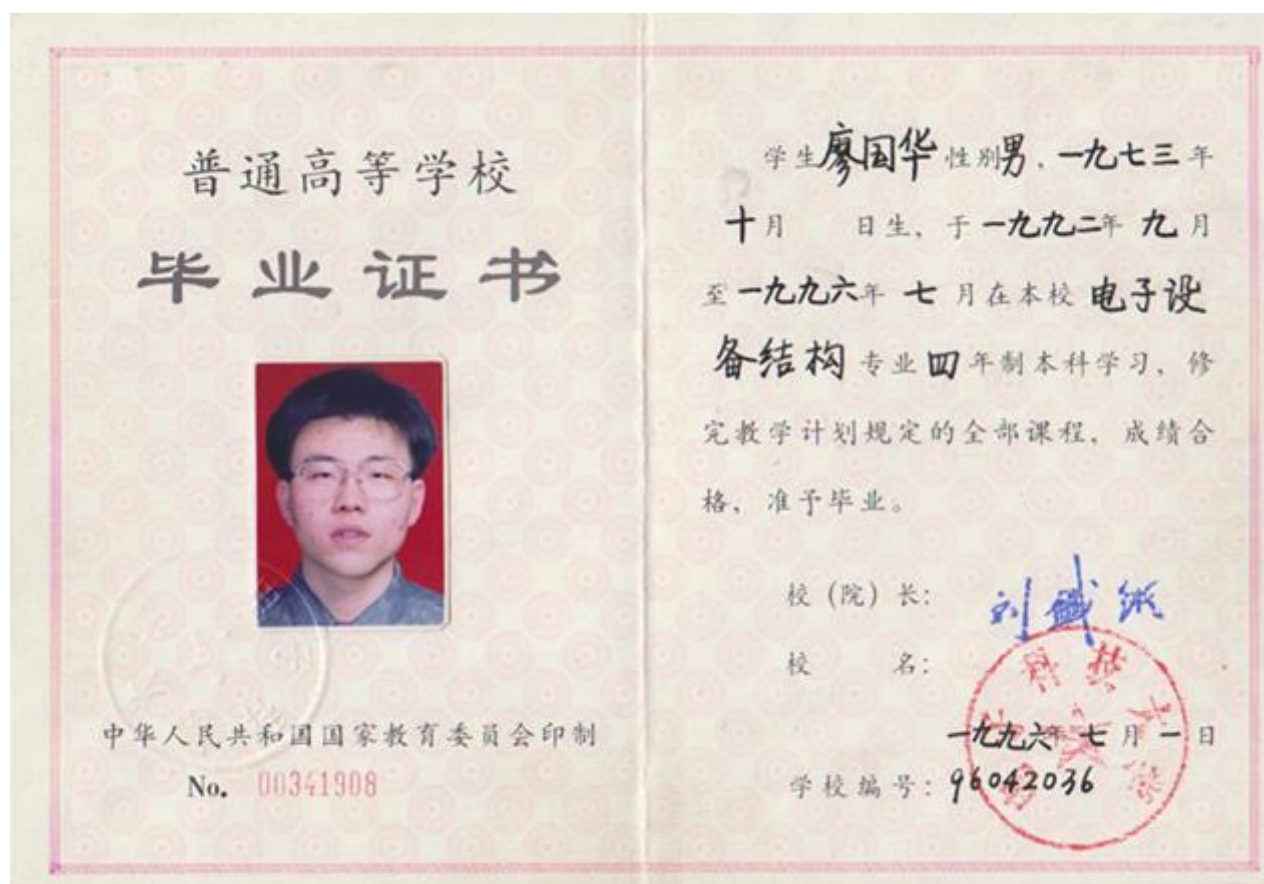 普通高等学校
毕业证书
中华人民共和国国家教育委员会印制
No. 00341908
学生廖国华性别男，一九七三年
十月 日生，于一九九二年九月
至一九九六年七月在本校电子设
备结构专业四年制本科学习，修
完教学计划规定的全部课程，成绩合
格，准予毕业。
校（院）长：刘盛纲
校 名：
科技大
一九九六年七月一日
学校编号：96042036